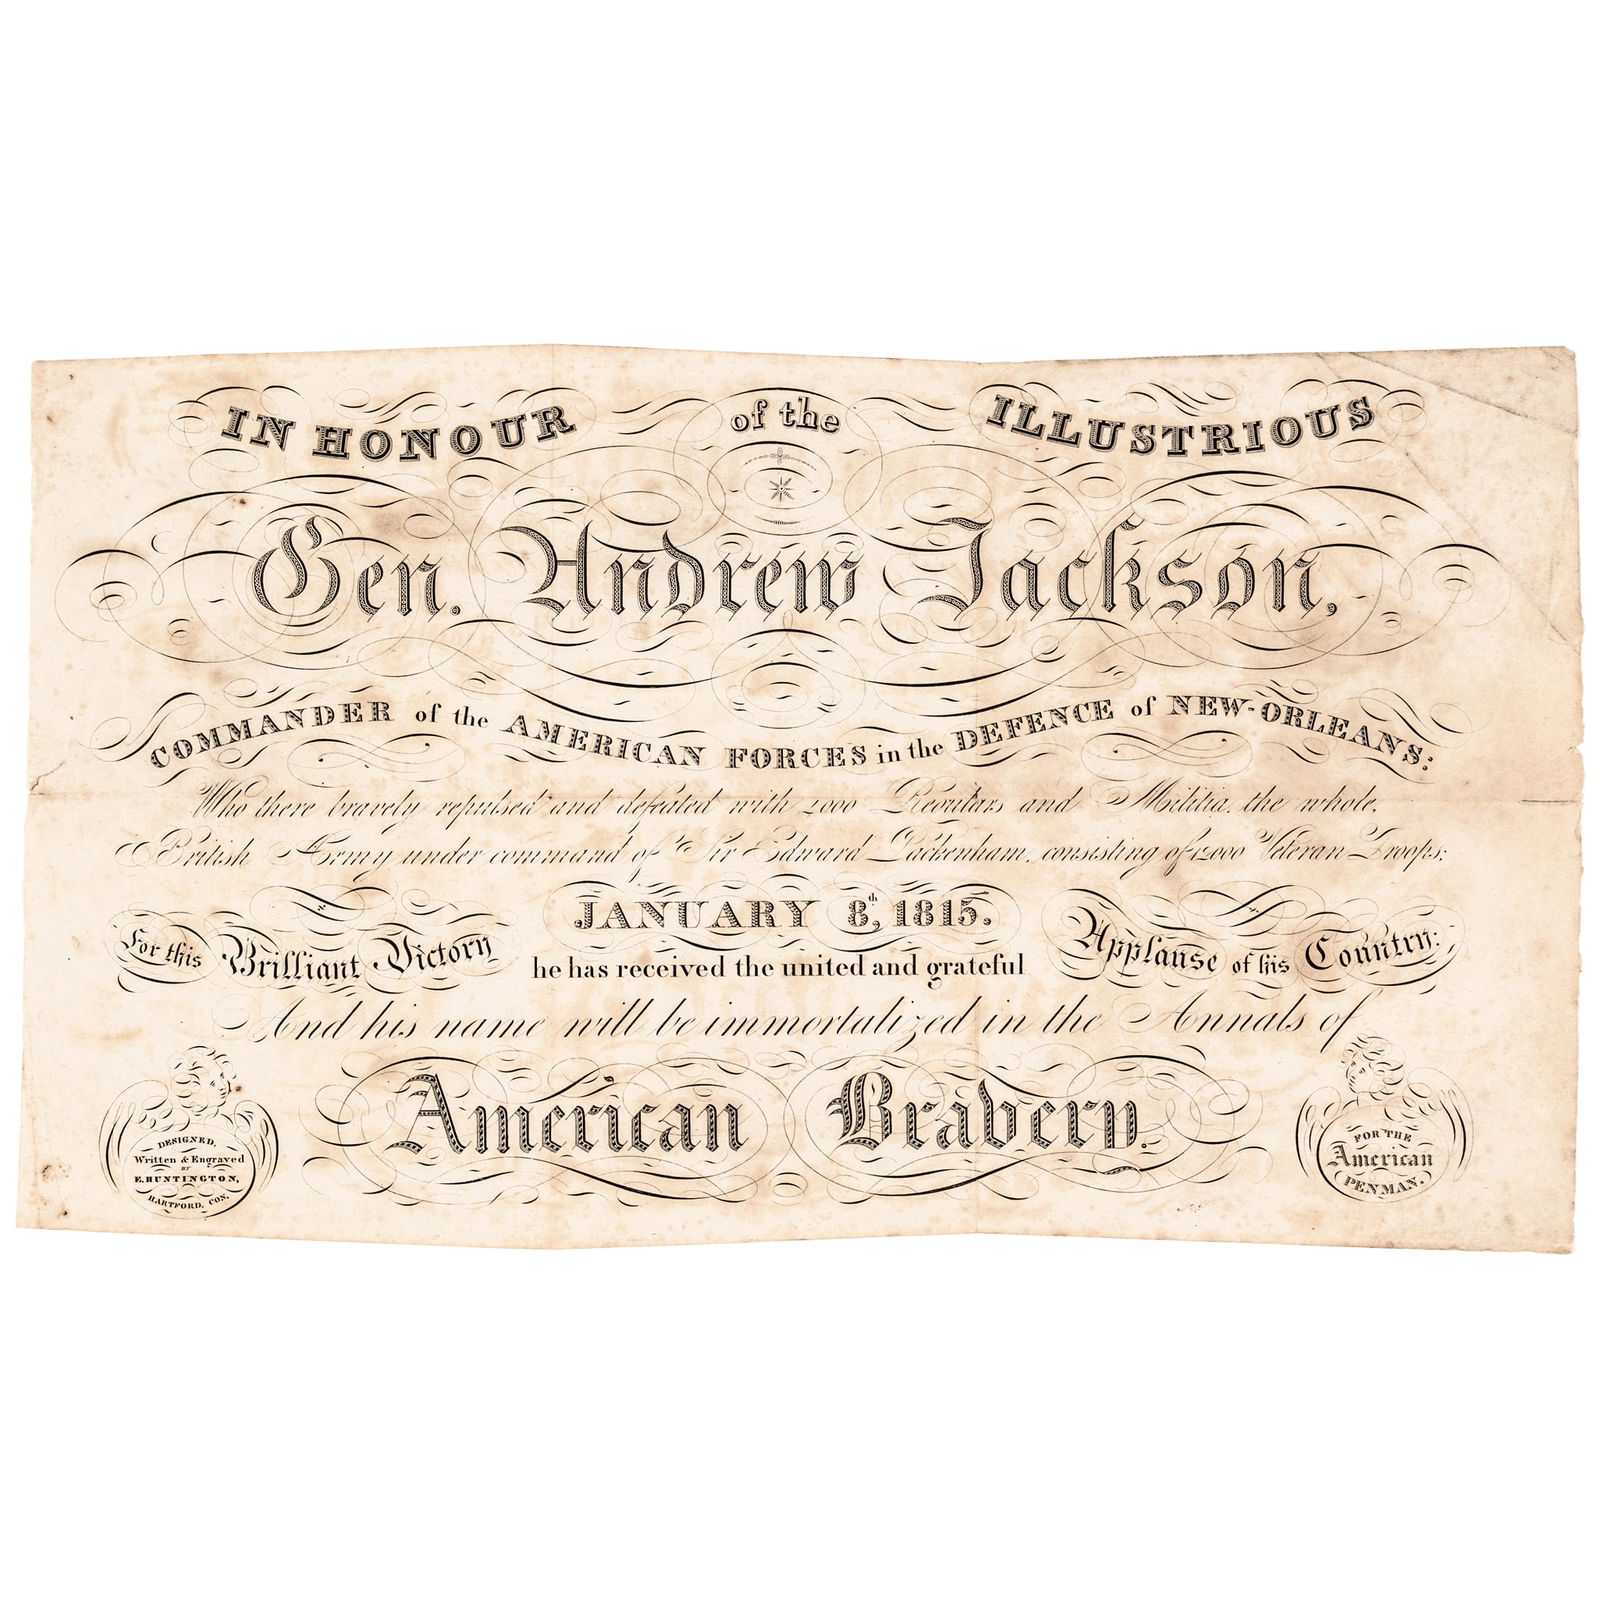 IN HONOUR of the ILLUSTRIOUS
Gen. Andrew Jackson,
COMMANDER of the AMERICAN FORCES in the DEFENCE of NEW-ORLEANS:
Who there bravely repulsed and defeated with 4000 Regulars and Militia, the whole
British Army under command of Sir Edward Packenham, consisting of 12000 Veteran Troops:
JANUARY 8th, 1815.
For this Brilliant Victory he has received the united and grateful Applause of his Country:
And his name will be immortalized in the Annals of
American Bravery.
DESIGNED,
Written & Engraved
BY
E. HUNTINGTON,
HARTFORD, CON.
FOR THE
American
PENMAN.